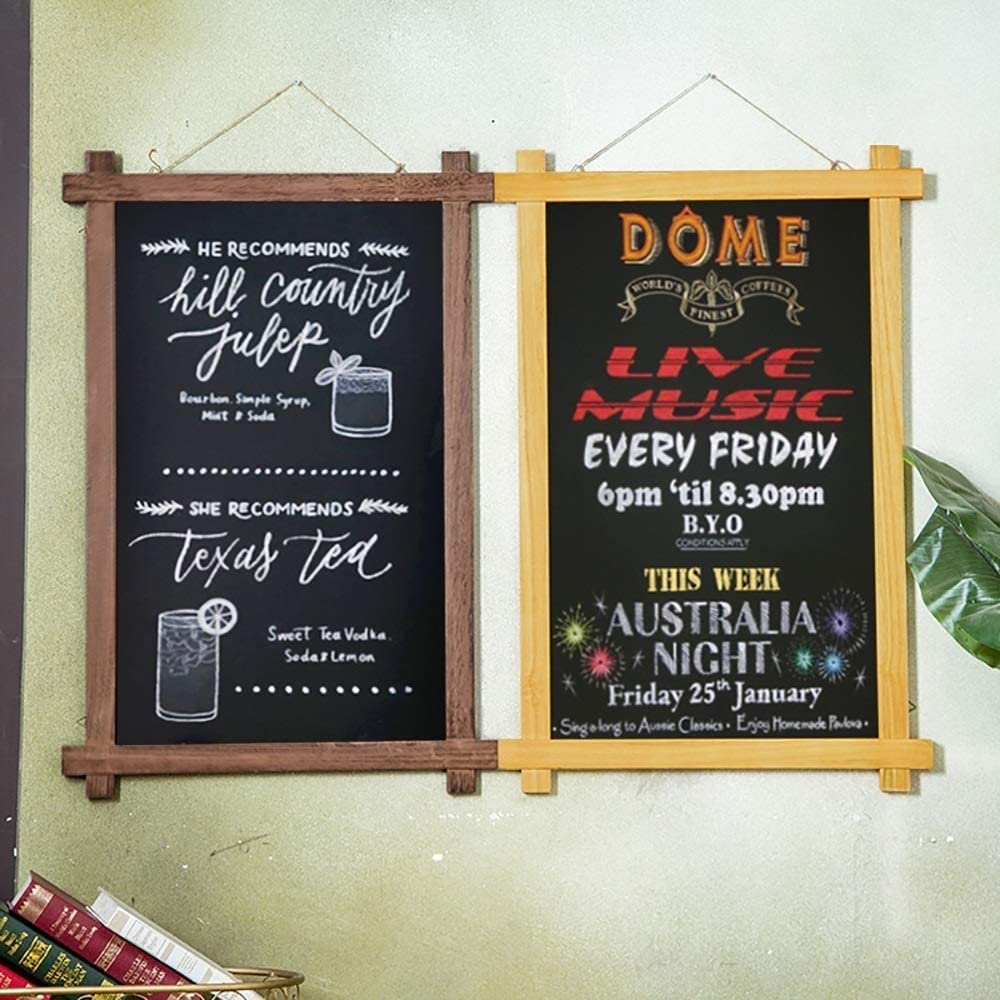 HE RECOMMENDS
hill country
julep
Bourbon, Simple Syrup,
Mint & Soda
SHE RECOMMENDS
texas tea
Sweet Tea Vodka.
Soda & Lemon
DÔME
WORLD'S FINEST COFFEES
LIVE
MUSIC
EVERY FRIDAY
6pm 'til 8.30pm
B.Y.O
CONDITIONS APPLY
THIS WEEK
AUSTRALIA
NIGHT
Friday 25th January
• Sing-a-long to Aussie Classics • Enjoy Homemade Pavlova •
CHARLES
DARWIN